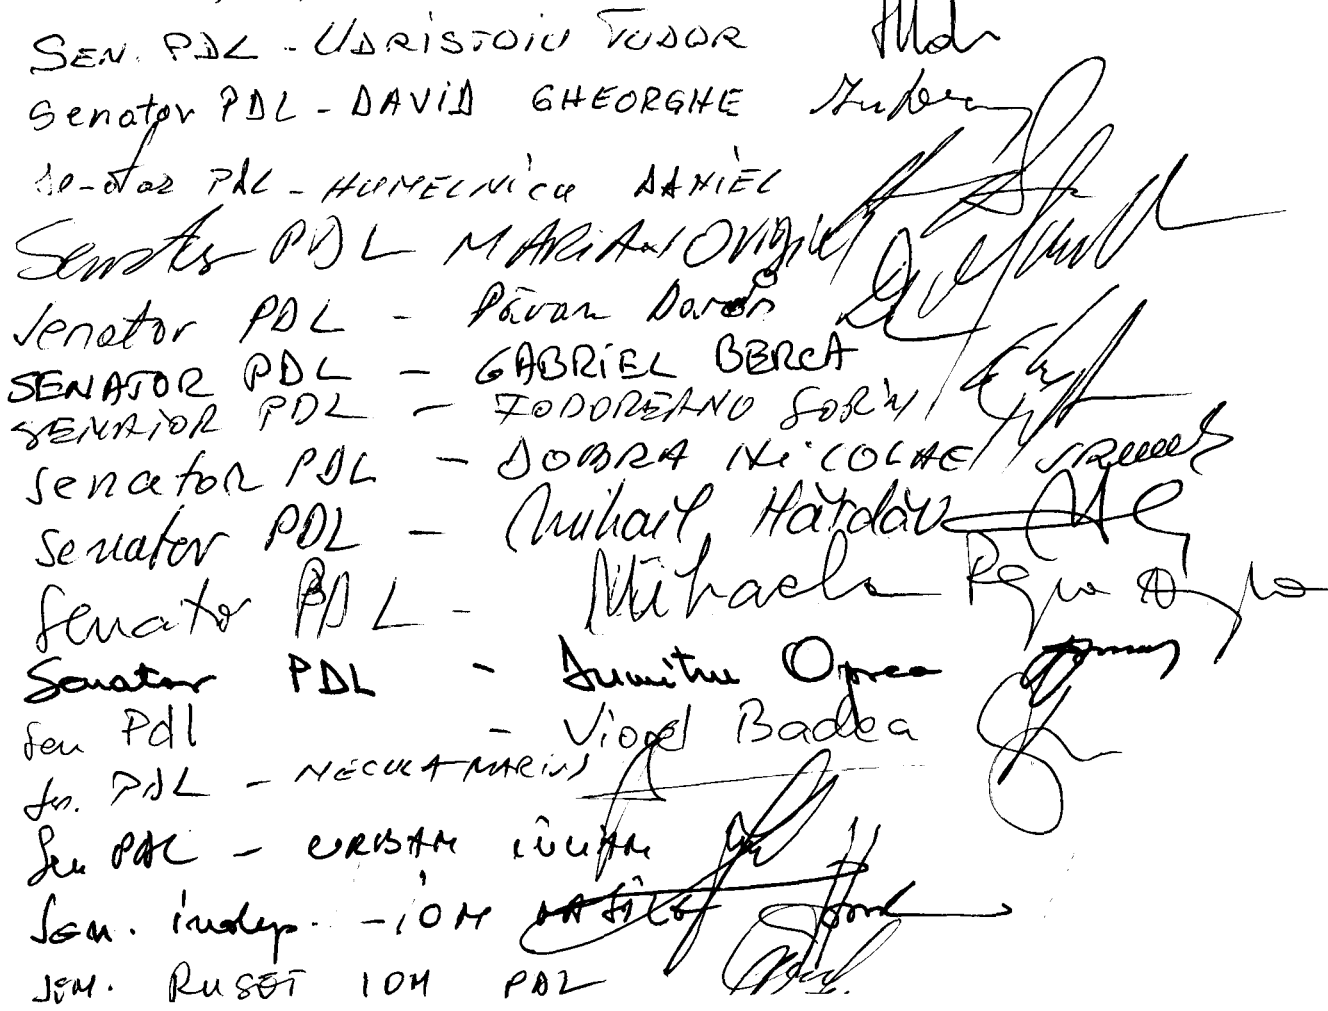 SEN. PDL - UDRISTOIU TUDOR
Senator PDL - DAVID GHEORGHE
PDL - HUMELNICU DANIEL
Senator PDL MARIAN OVIDIU
Senator PDL - Păran Dorin
SENATOR PDL - GABRIEL BERCA
SENATOR PDL - TODOREANU SORIN
Senator PDL - DOBRA NICOLAE
Senator PDL - Mihail Hărdău
Senator PDL - Mihaela Popa
Senator PDL - Dumitru Oprea
Sen Pdl - Viorel Badea
Sen. PDL - NECULA MARIUS
Sen PDL - URBAN IULIAN
Sen. indep. - ION VASILE
SEN. RUSET ION PDL